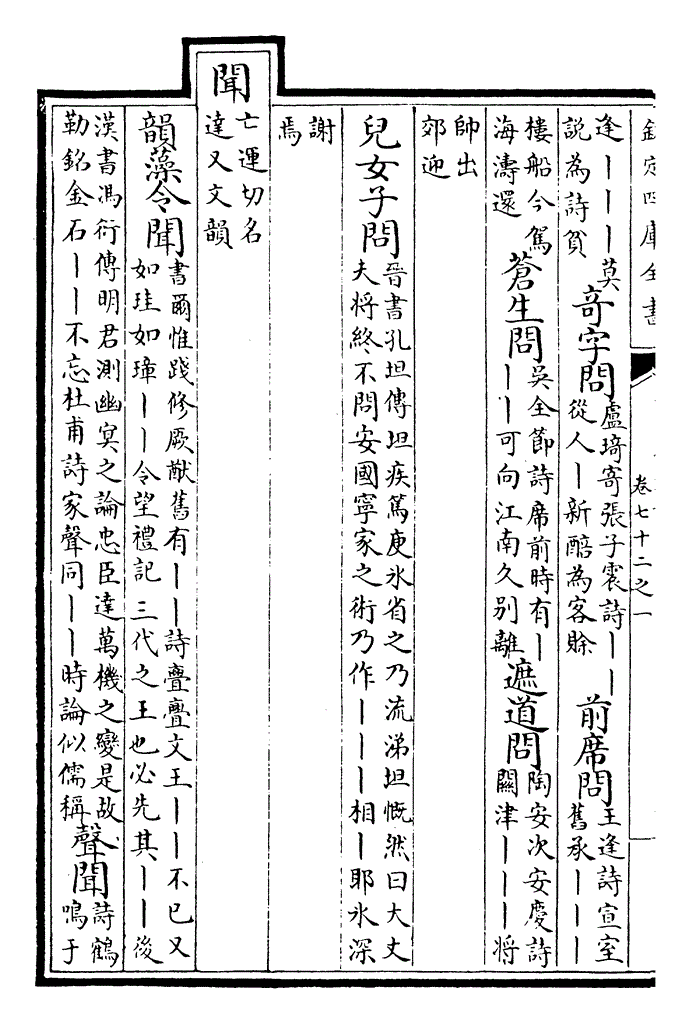 欽定四庫全書 卷七十二之一
逢丨丨丨莫說為詩貧 奇字問 盧琦寄張子震詩丨丨從人丨新醅為客賒 前席問 王逢詩宣室舊承丨丨丨
樓船今駕海濤還 蒼生問 吳全節詩席前時有丨丨丨可向江南久别離 遮道問 陶安次安慶詩關津丨丨丨將
帥出郊迎
兒女子問 晉書孔坦傳坦疾篤庾氷省之乃流涕坦慨然曰大丈夫將終不問安國寧家之術乃作丨丨丨相丨耶氷深
謝焉
聞 亡運切名達又文韻
韻藻令聞 書爾惟踐修厥猷舊有丨丨詩亹亹文王丨丨不已又如珪如璋丨丨令望禮記三代之王也必先其丨丨後
漢書馮衍傳明君測幽冥之論忠臣達萬機之變是故勒銘金石丨丨不忘杜甫詩家聲同丨丨時論似儒稱 聲聞 詩鶴鳴于